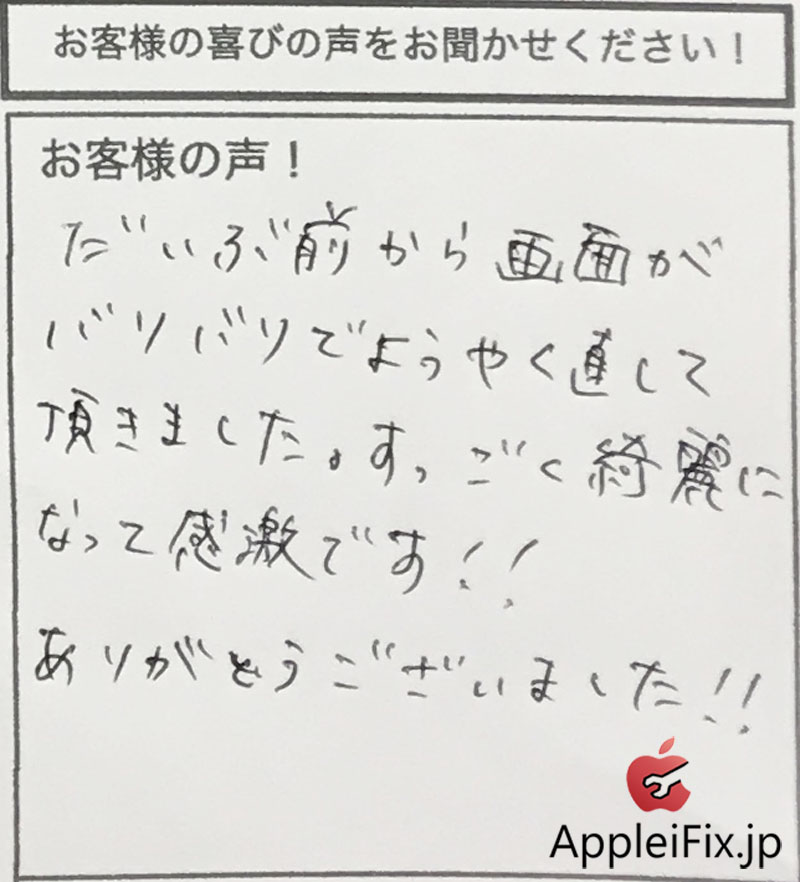 お客様の喜びの声をお聞かせください！
お客様の声！
だいぶ前から画面が
バリバリでようやく直して
頂きました。すっごく綺麗に
なって感激です!!
ありがとうございました!!
AppleiFix.jp